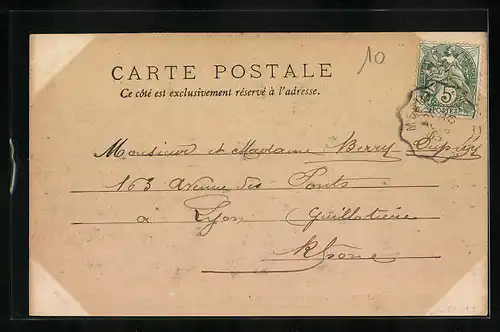 10
CARTE POSTALE
Ce côté est exclusivement réservé à l'adresse.
5
Monsieur et Madame Berry Dupuy
163 Avenue des Ponts
à Lyon Guillotière
Rhône